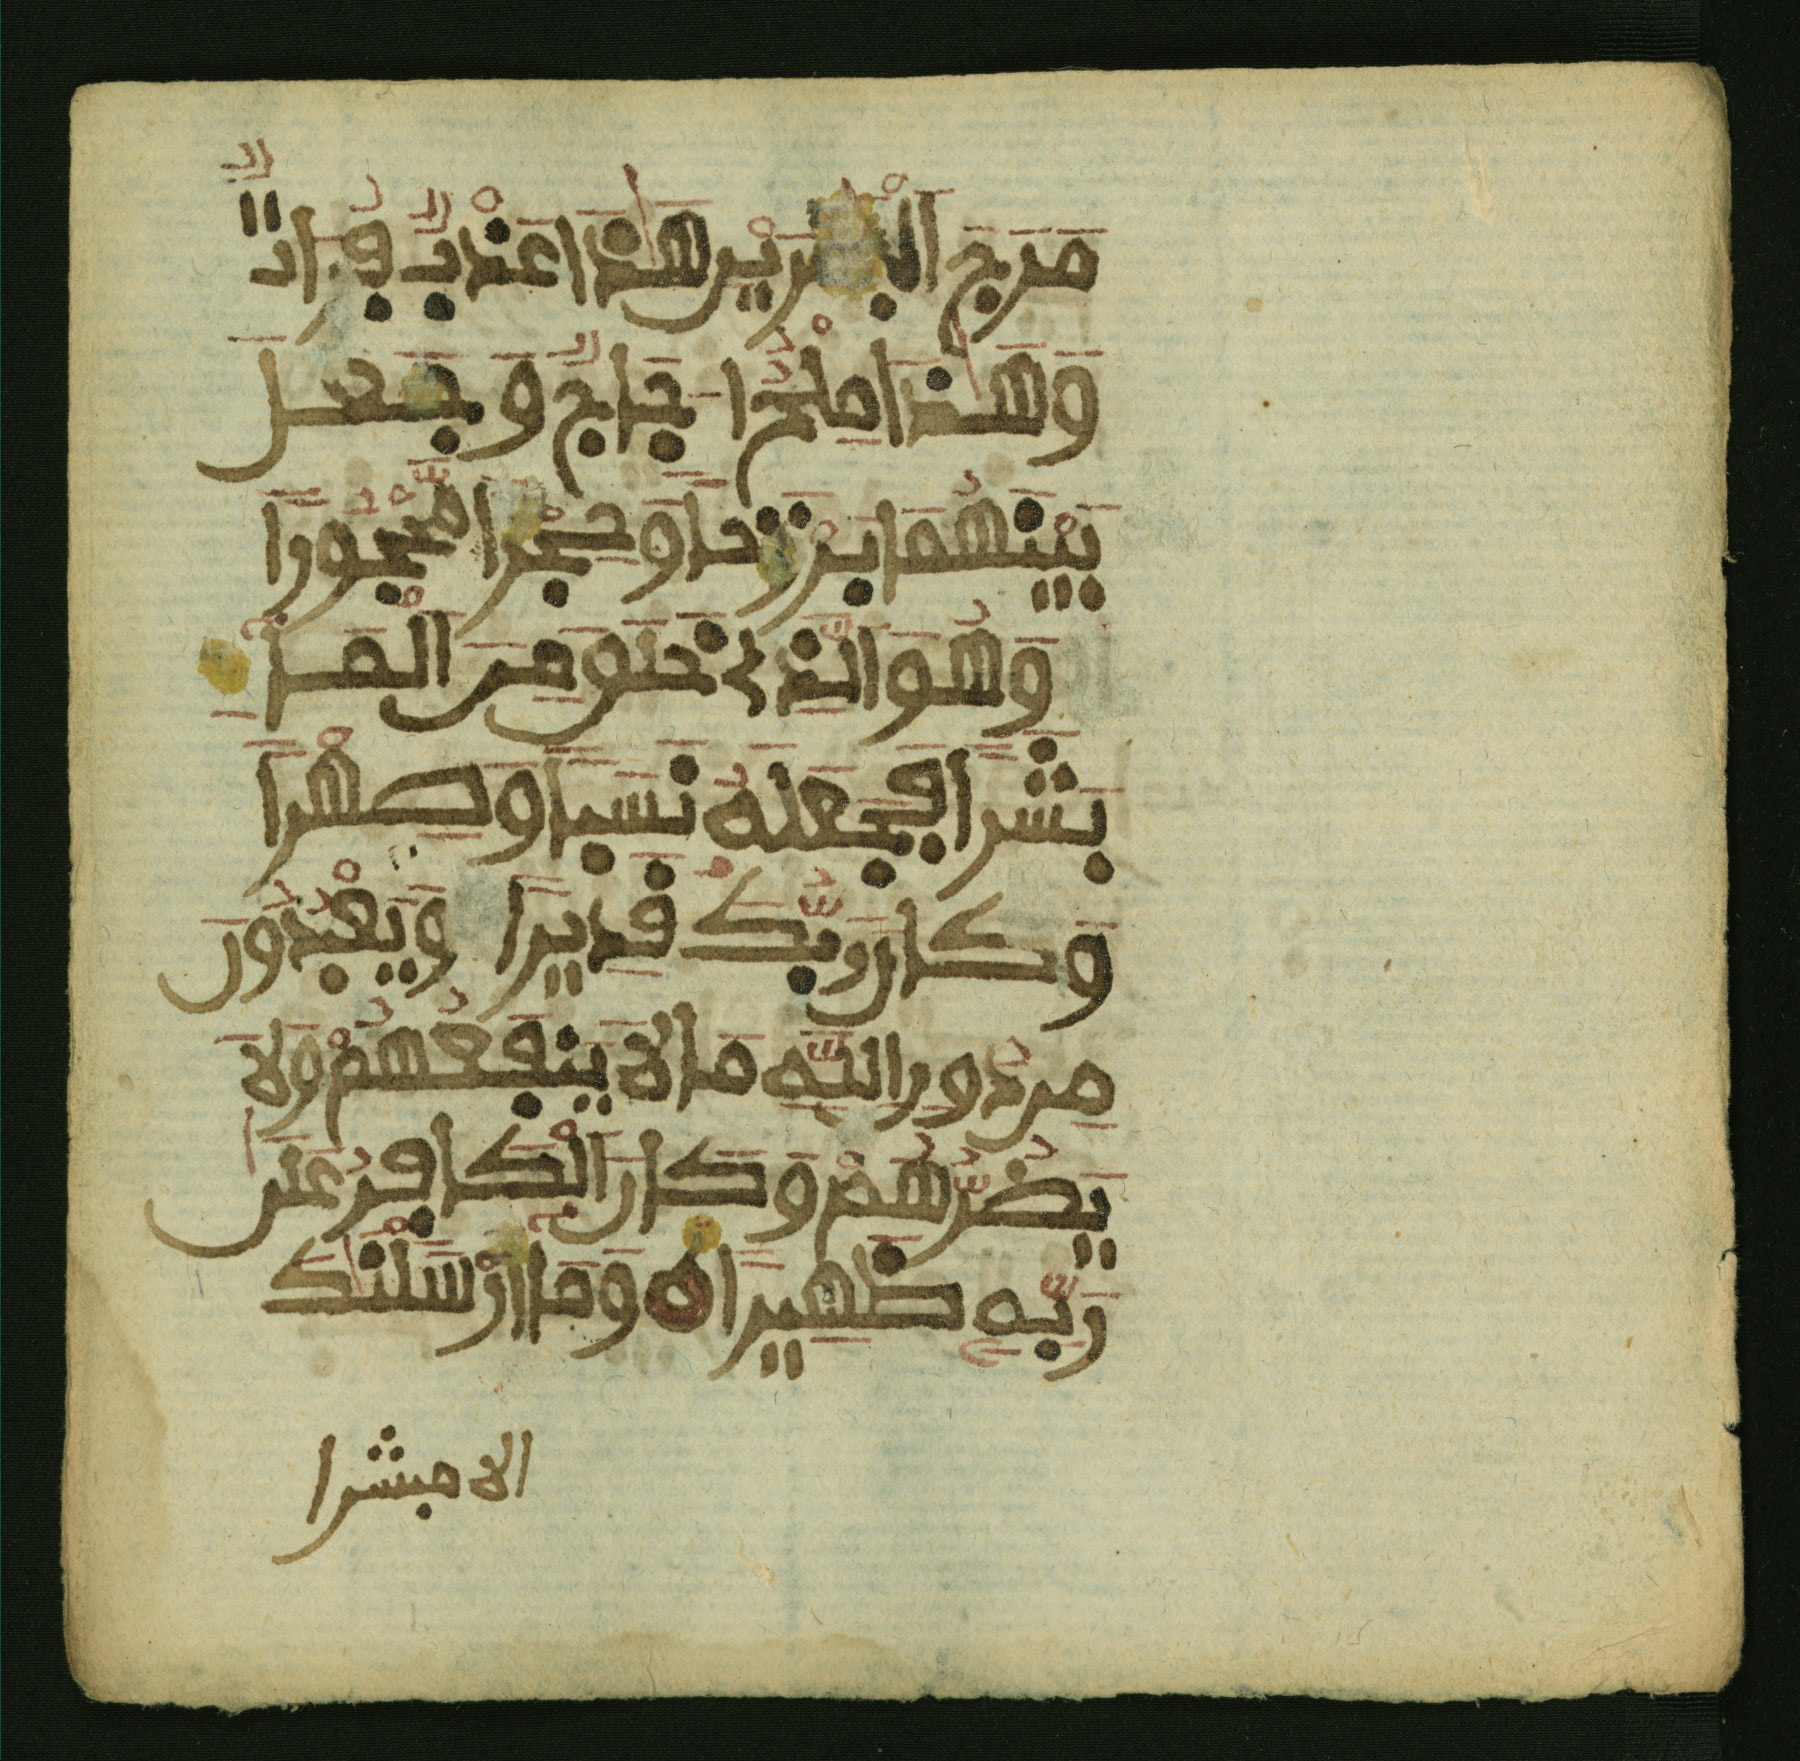 مَرَجَ الْبَحْرَيْنِ هَٰذَا عَذْبٌ فُرَاتٌ
وَهَٰذَا مِلْحٌ اُجَاجٌ وَجَعَلَ
بَيْنَهُمَا بَرْزَخاً وَحِجْراً مَّحْجُوراً
وَهُوَ الَّذِے خَلَقَ مِنَ الْمَاءِ
بَشَراً فَجَعَلَهُ نَسَباً وَصِهْراً
وَكَانَ رَبُّكَ قَدِيراً وَيَعْبُدُونَ
مِن دُونِ اللَّهِ مَا لَا يَنفَعُهُمْ وَلَا
يَضُرُّهُمْ وَكَانَ الْكَافِرُ عَلَىٰ
رَبِّهِ ظَهِيراً ه وَمَا أَرْسَلْنَٰكَ
الا مبشرا